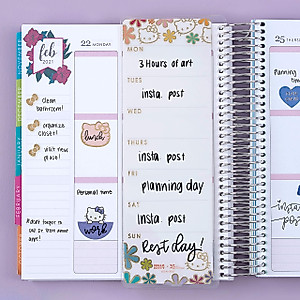 feb
2021
22 MONDAY
clean
bathroom!
organize
closet!
visit new
place!
lunch
Personal time
work
MON
3 Hours of art
TUES
insta. post
WED
THURS
insta. post
FRI
planning day
SAT
insta. post
SUN
Rest day!
25 THURSDAY
Planning
time